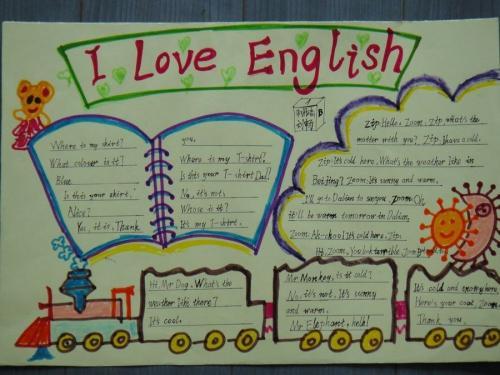 I Love English
Where is my skirt?
What colour is it?
Blue.
Is this your skirt,
Alice?
Yes, it is. Thank
you.
Where is my T-shirt?
Is this your T-shirt, Dad?
No, it's not.
Whose is it?
It's my T-shirt.
B
Zip: Hello, Zoom. Zip, what's the
matter with you? Zip: I have a cold.
Zip: It's cold here. What's the weather like in
Beijing? Zoom: It's sunny and warm.
I'll go to Dalian to see you, Zoom. Oh,
it'll be warm tomorrow in Dalian.
Zoom: Ah-choo! It's cold here, Zip.
Hi, Zoom. You look terrible.
Hi, Mr Dog. What's the
weather like there?
It's cool.
Mr Monkey, is it cold?
No, it's not. It's sunny
and warm.
Mr Elephant, help!
It's cold and snowy here.
Here's your coat
Thank you.